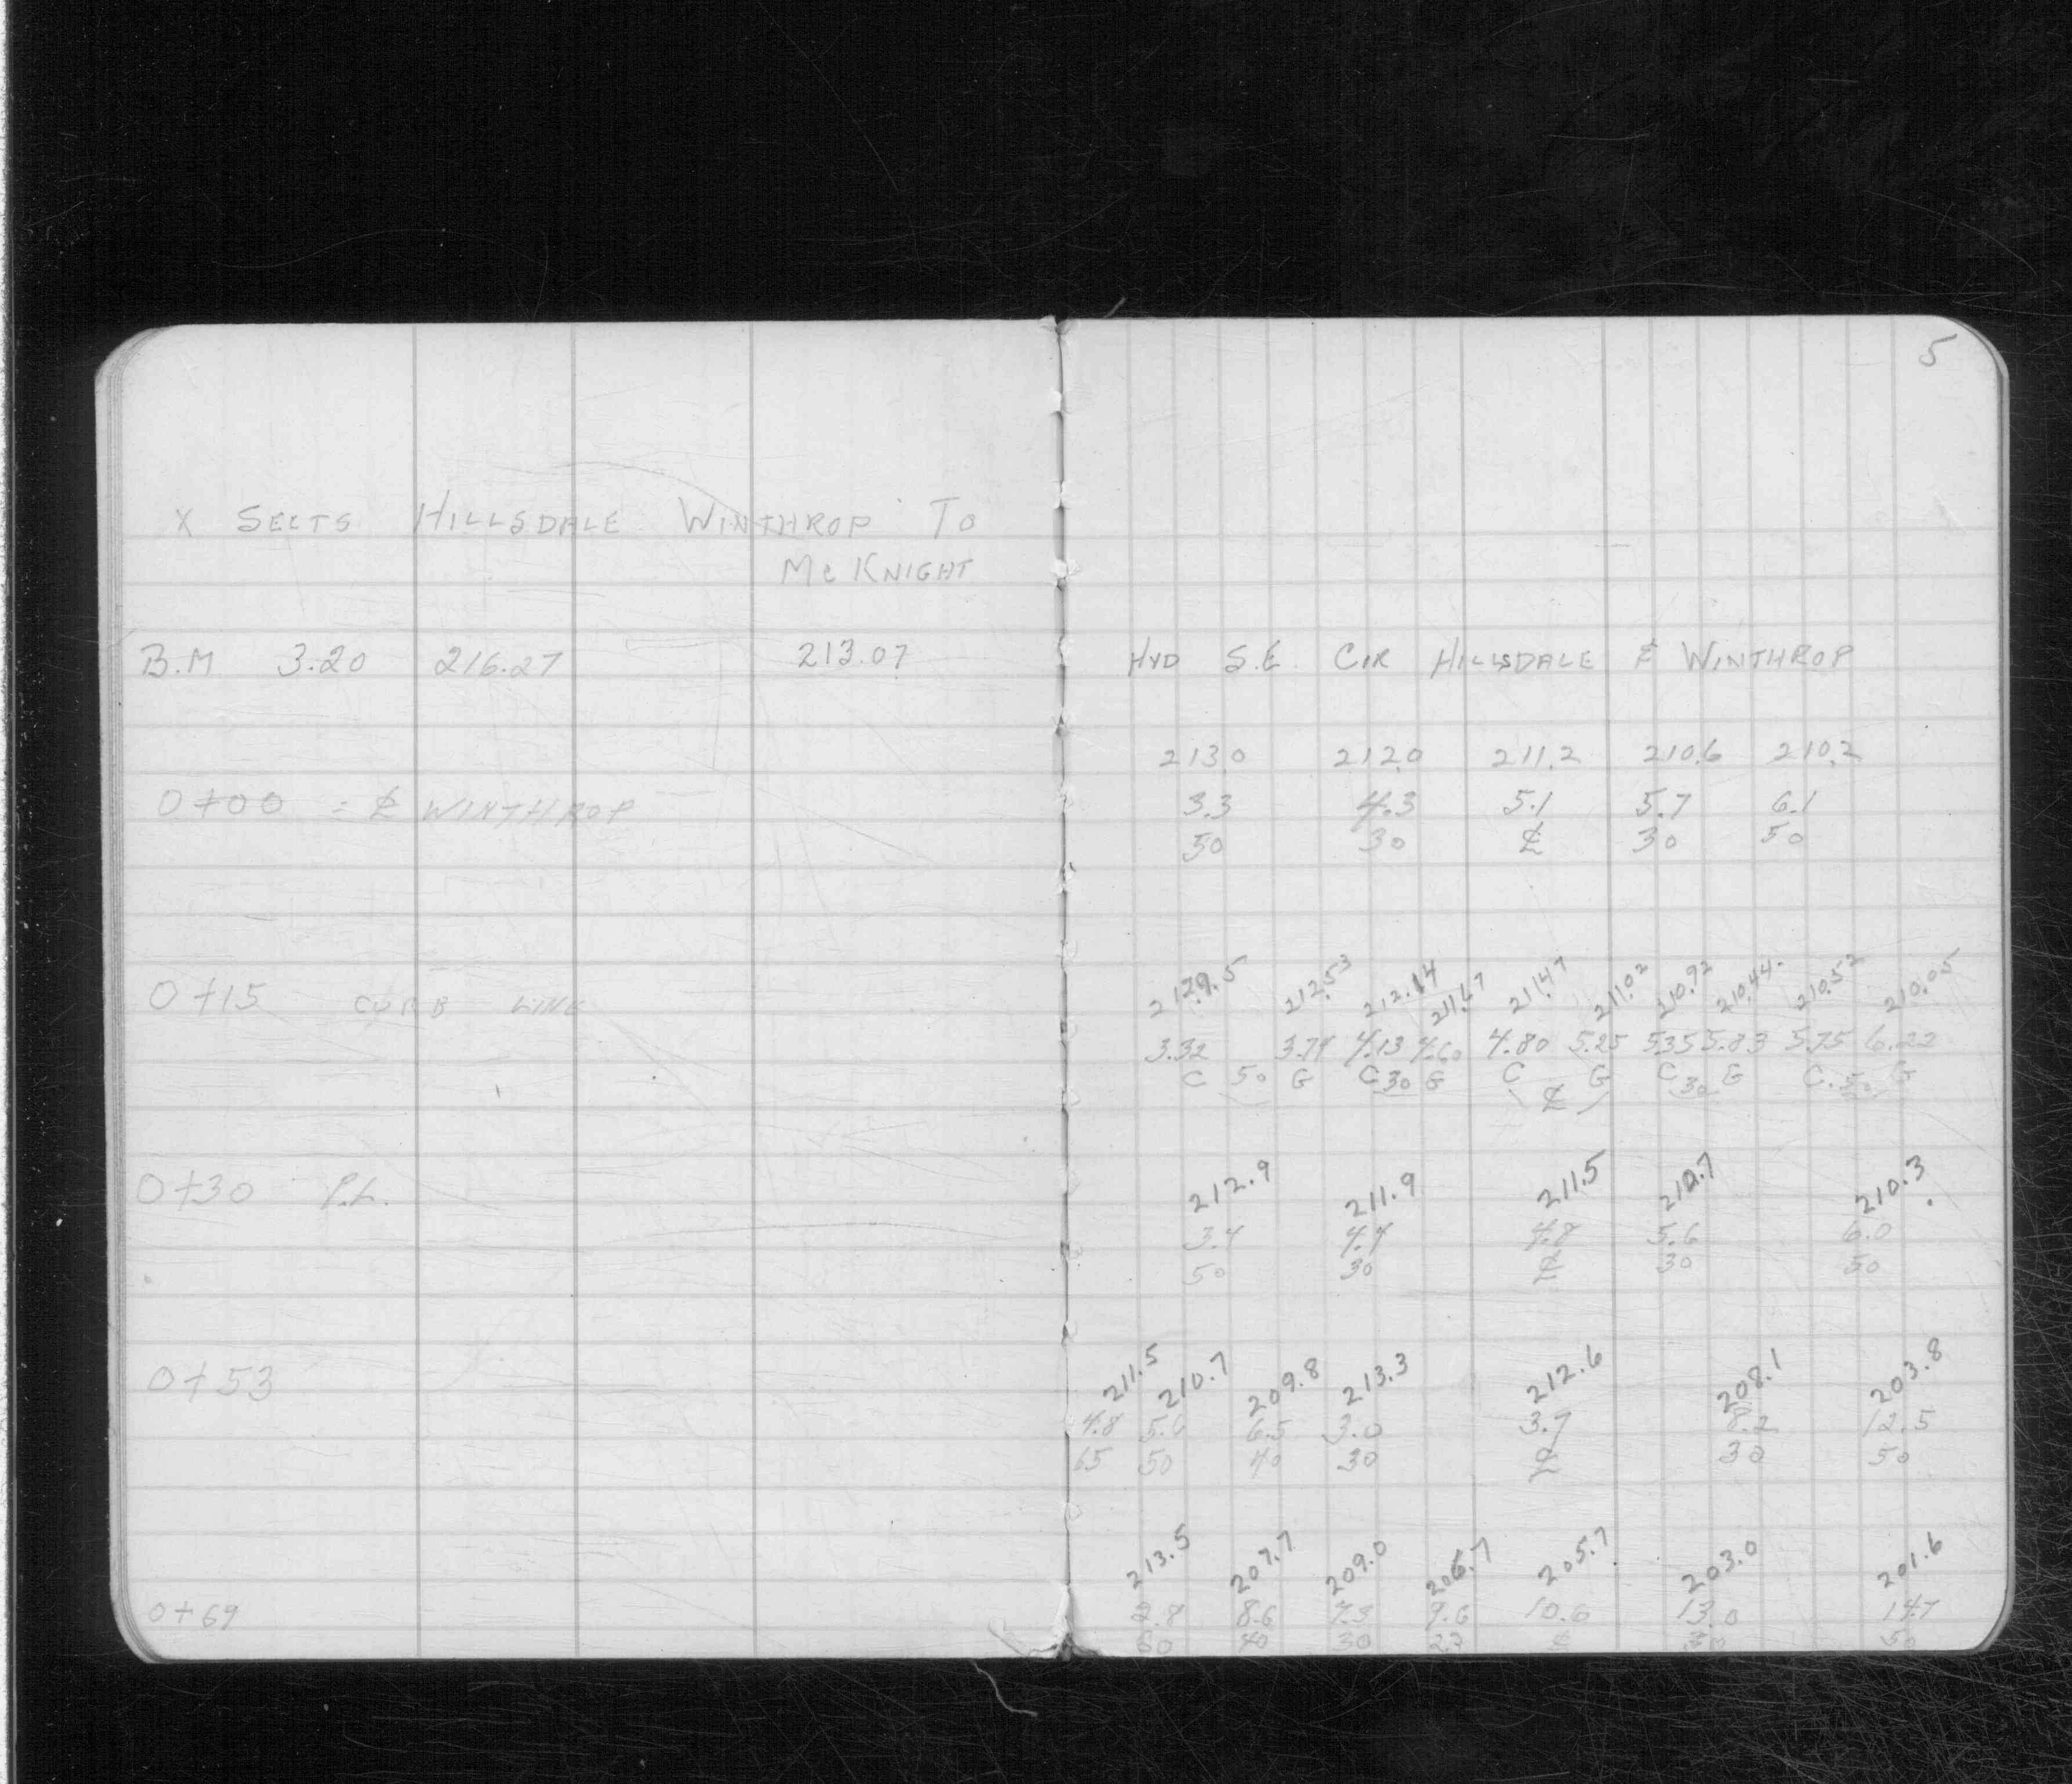 5
X SECTS HILLSDALE WINTHROP TO
McKNIGHT
B.M 3.20 216.27 213.07 HYD S.E. COR HILLSDALE & WINTHROP
213.0 212.0 211.2 210.6 210.2
0+00 = ℄ WINTHROP 3.3 4.3 5.1 5.7 6.1
50 30 ℄ 30 50
212.95 212.53 212.14 211.67 211.47 211.02 210.92 210.44 210.52 210.05
0+15 CURB LINE 3.32 3.74 4.13 4.60 4.80 5.25 5.35 5.83 5.75 6.22
C 50 G C 30 G C ℄ G C 30 G C 50 G
212.9 211.9 211.5 210.7 210.3
0+30 P.L. 3.4 4.4 4.8 5.6 6.0
50 30 ℄ 30 50
211.5 210.7 209.8 213.3 212.6 208.1 203.8
0+53 4.8 5.6 6.5 3.0 3.7 8.2 12.5
65 50 40 30 ℄ 30 50
213.5 207.7 209.0 206.7 205.7 203.0 201.6
0+69 2.8 8.6 7.3 9.6 10.6 13.0 14.7
40 30 22 ℄ 30 50